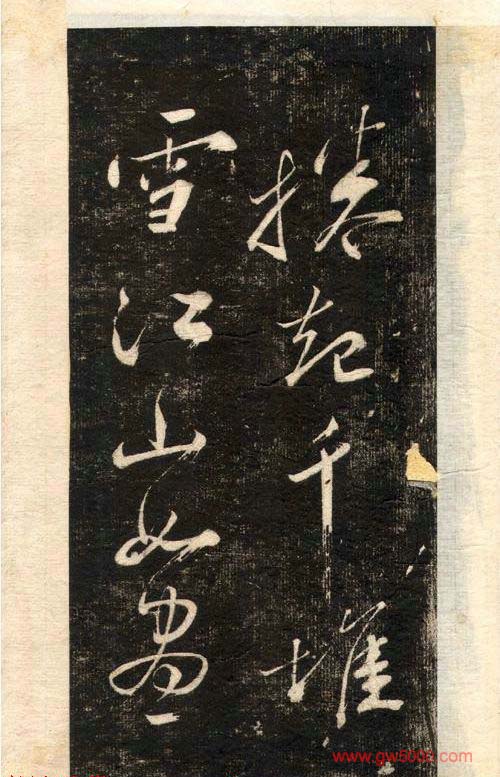 捲起千堆
雪江山如畫
www.gw5000.com